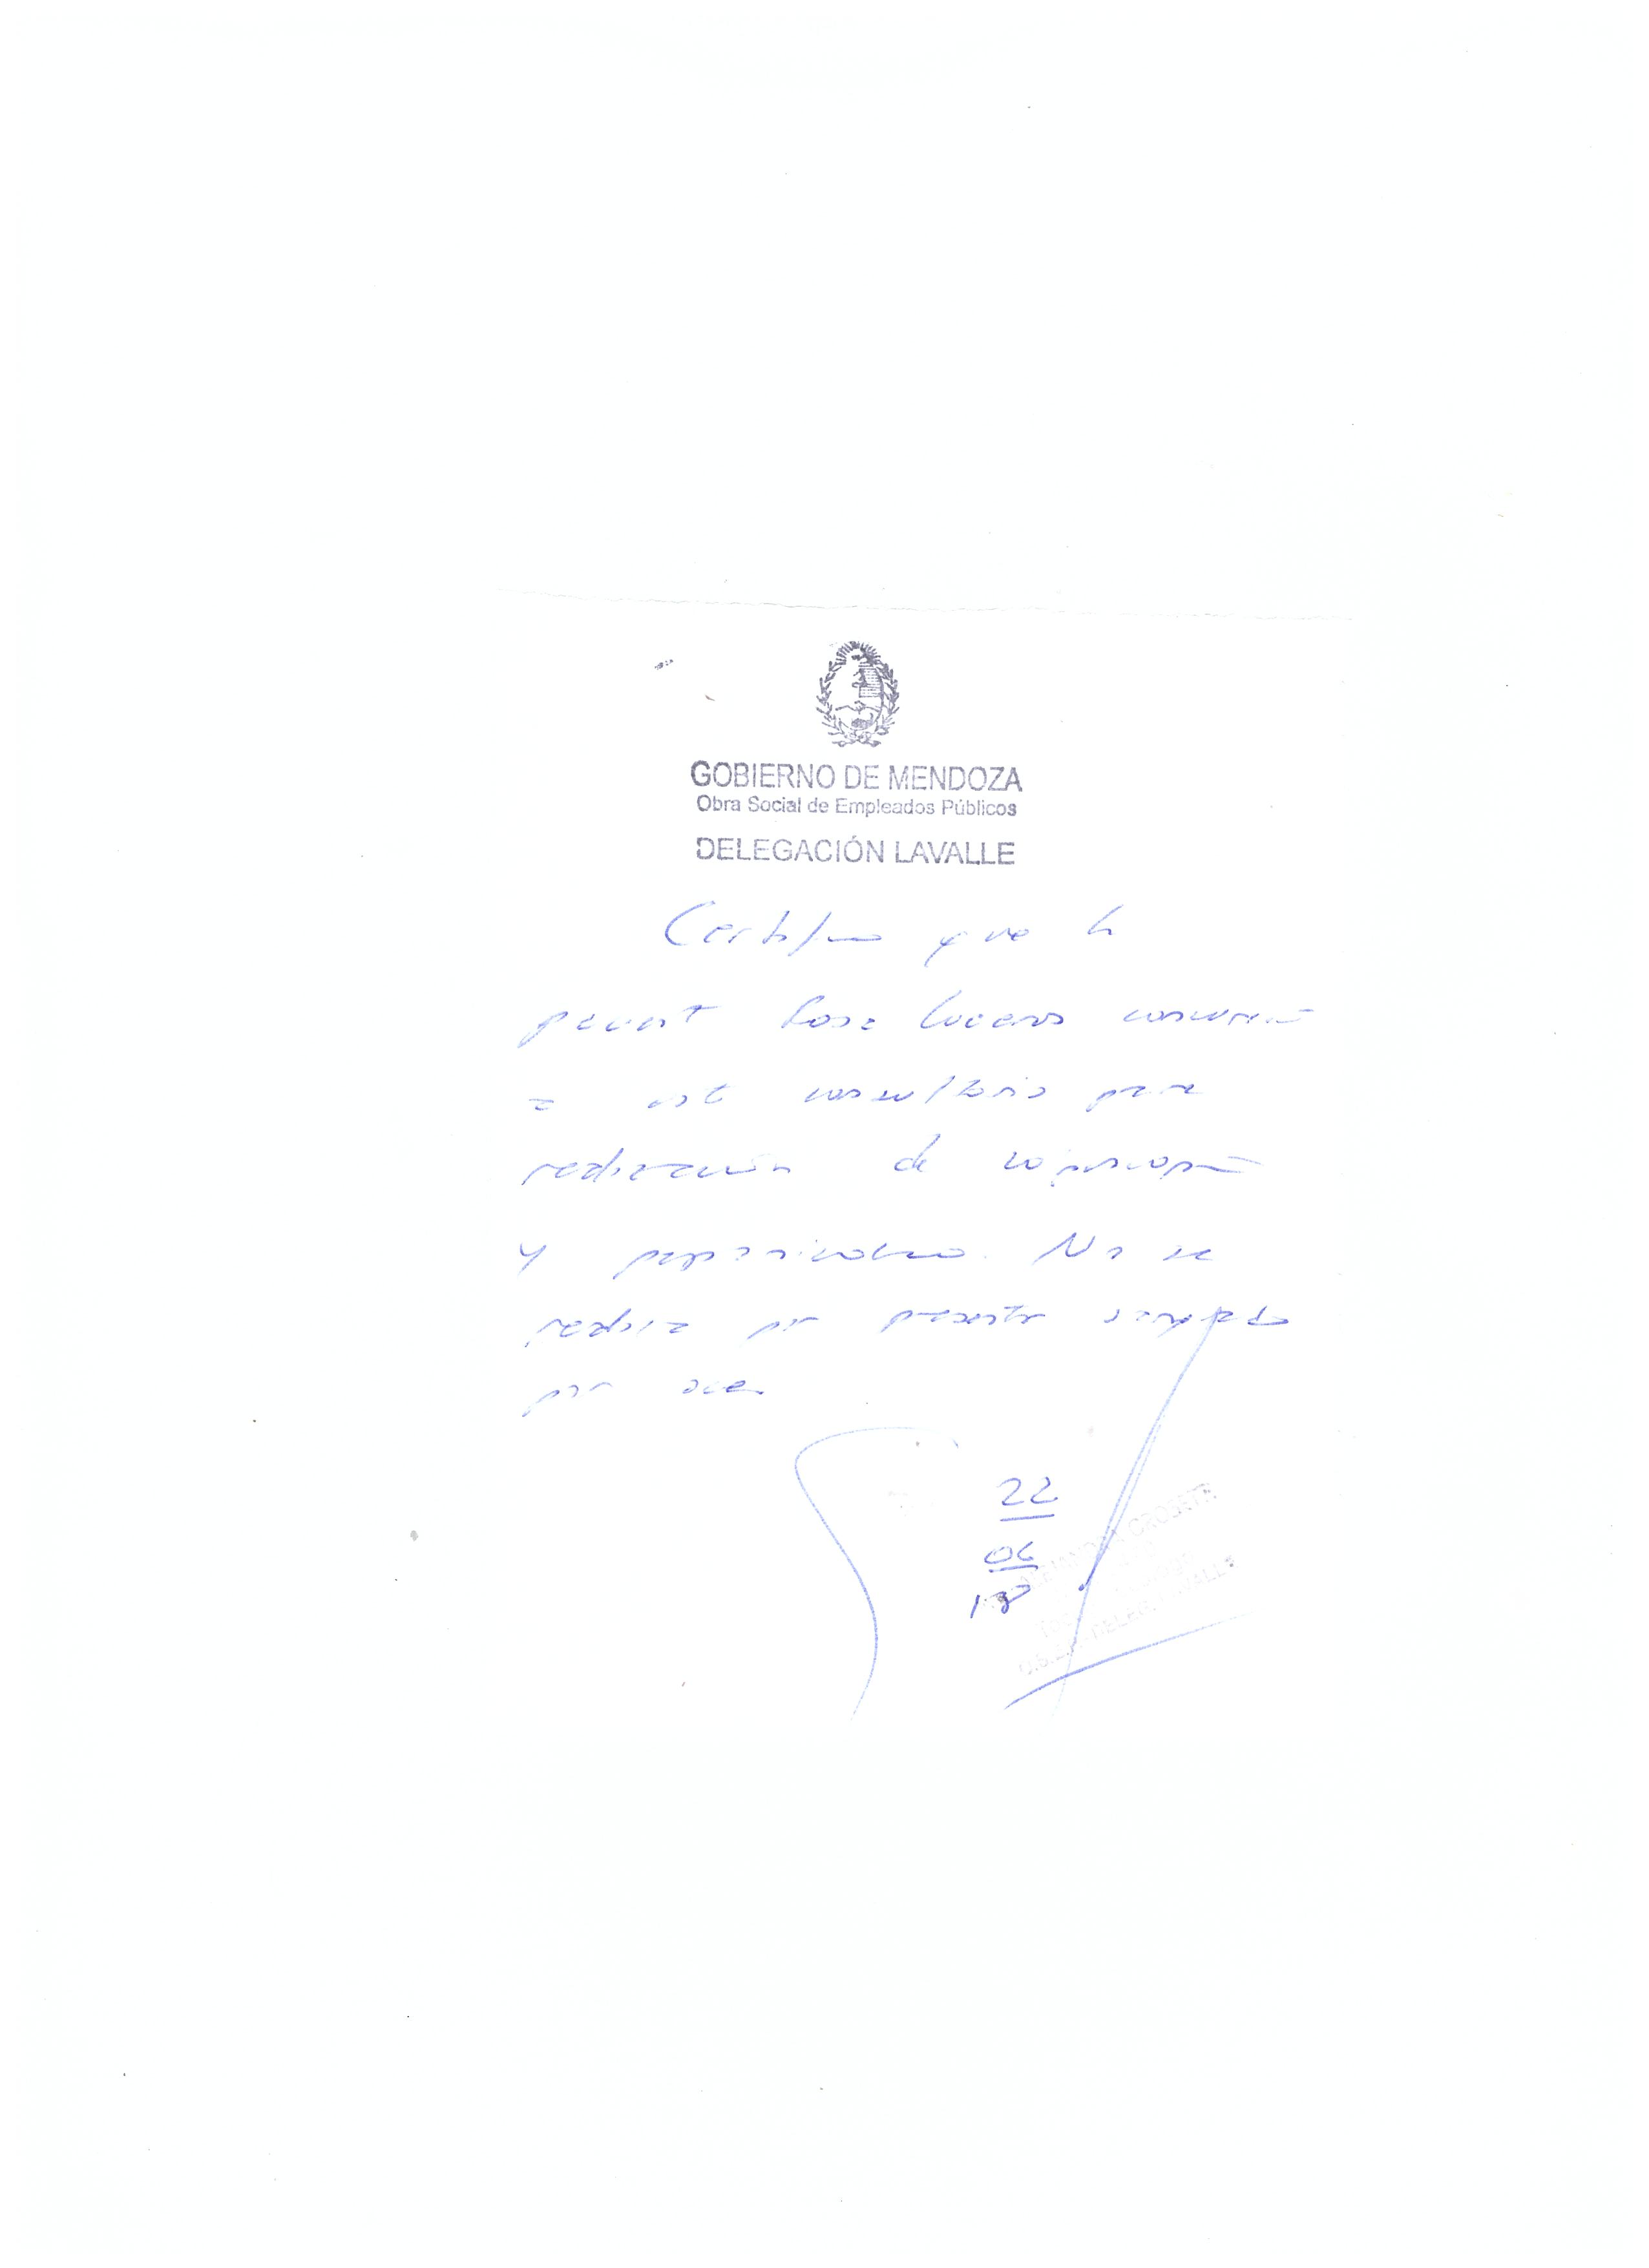 GOBIERNO DE MENDOZA
Obra Social de Empleados Públicos
DELEGACIÓN LAVALLE
Certifico que la
pacient Rosa Lucero concurrió
a este consultorio para
realización de colposcopia
y papanicolaou. No se
realiza por presentar sangrado
por
22
06
18